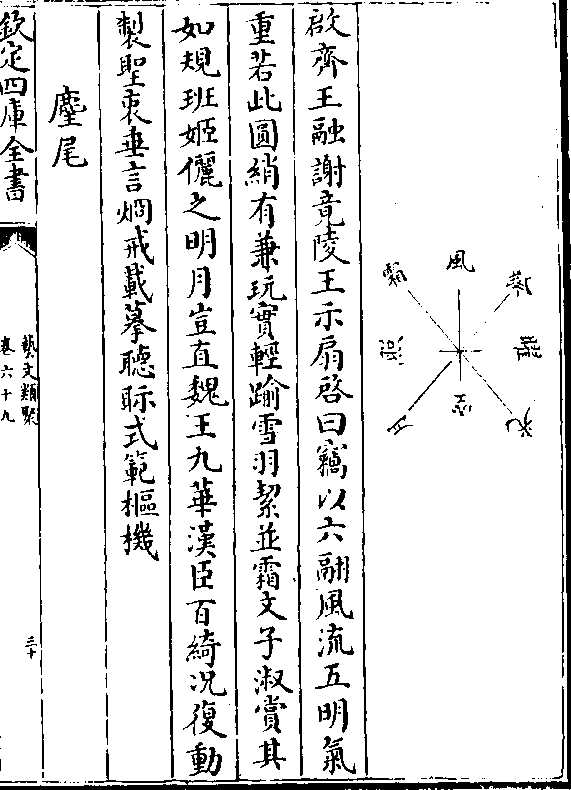 風
霜
啟齊王融謝竟陵王示扇啓曰竊以六翮風流五明氣
重若此圓綃有兼玩實輕踰雪羽絜並霜文子淑賞其
如規班姬儷之明月豈直魏王九華漢臣百綺况復動
製聖衷垂言烱戒載摹聴眎式範樞機
麈尾
欽定四庫全書
藝文類聚
卷六十九
三十